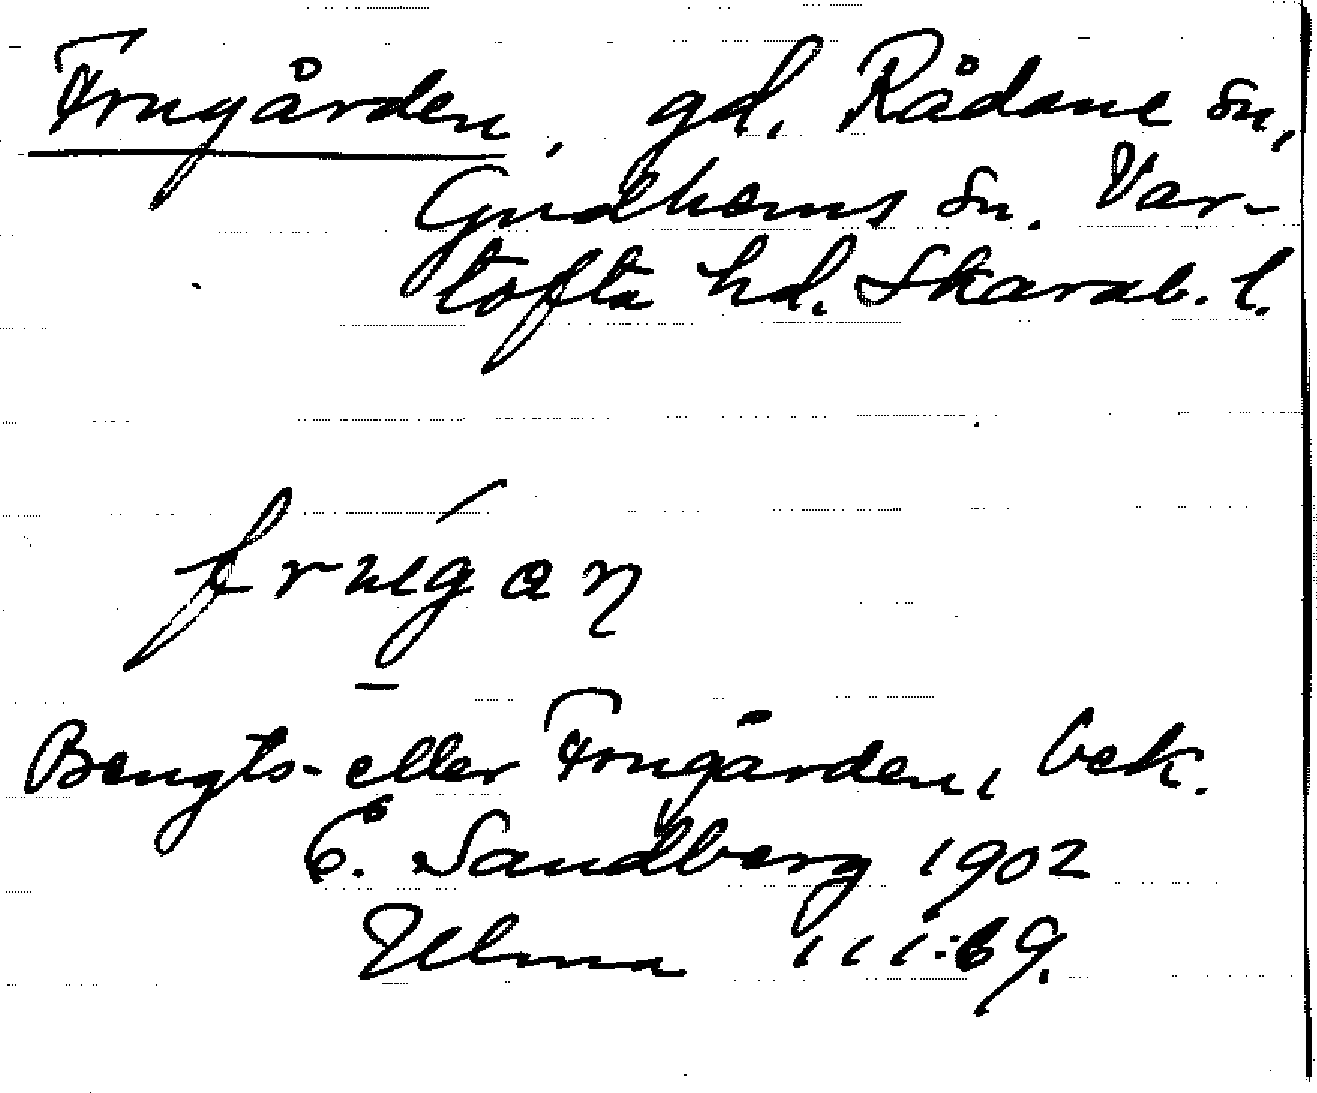 Frugården, gd. Rådene sn,
Gudhems sn. Var-
tofta hd. Skarab. l.
frugan
Bengts- eller Frugården, bek.
E. Sandberg 1902
Ulma 111:69.